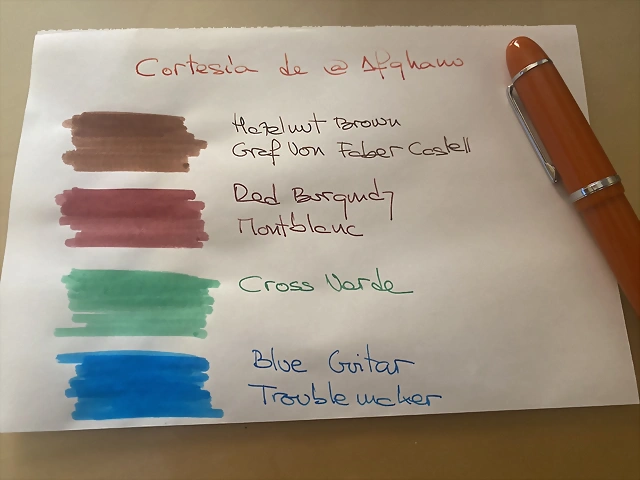 Cortesía de @Afghano
Hazelnut Brown
Graf Von Faber Castell
Red Burgundy
Montblanc
Cross Verde
Blue Guitar
Troublemaker